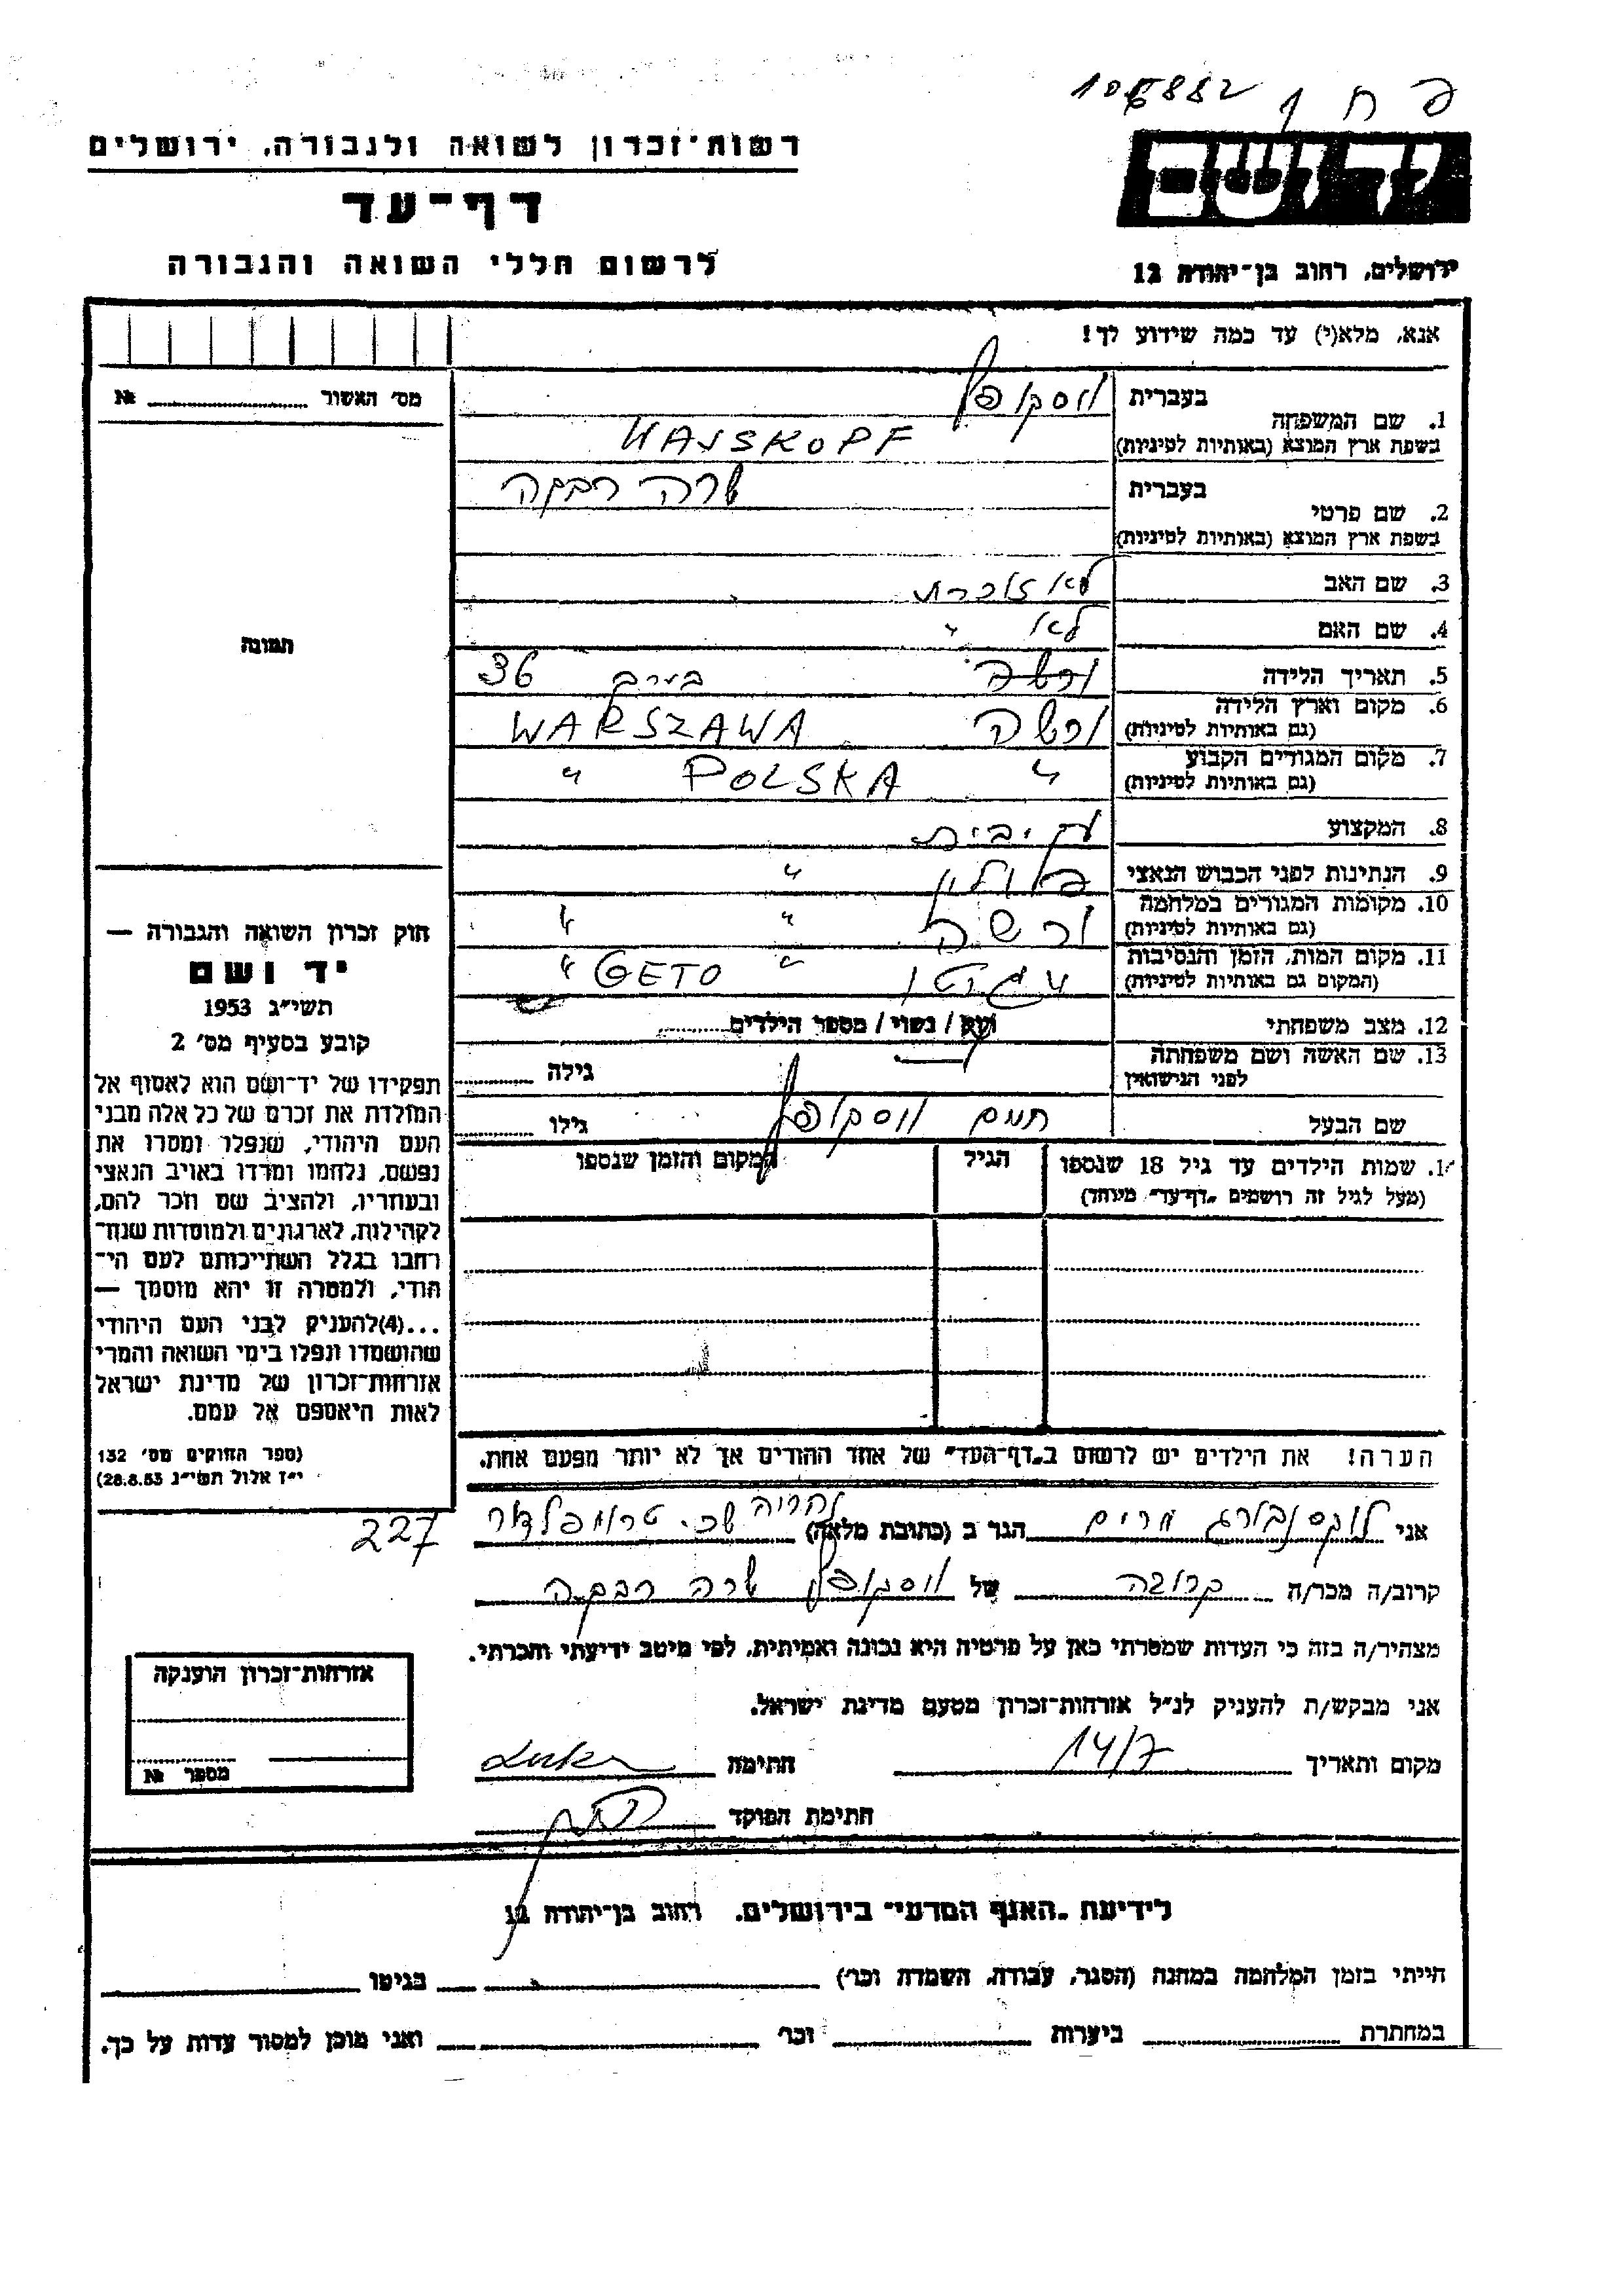 106882 פ ח 1
רשות-זכרון לשואה ולגבורה, ירושלים
דף-עד
לרשום חללי השואה והגבורה
יד ושם
ירושלים, רחוב בן-יהודה 12
אנא, מלא(י) עד כמה שידוע לך!
מס' האשור № ........
1. שם המשפחה
בעברית ווסקופף
בשפת ארץ המוצא (באותיות לטיניות) WAJSKOPF
2. שם פרטי
בעברית שרה רבקה
בשפת ארץ המוצא (באותיות לטיניות)
3. שם האב לא זוכרת
4. שם האם לא "
5. תאריך הלידה ורשה בערך 36
6. מקום וארץ הלידה ורשה WARSZAWA
(גם באותיות לטיניות)
7. מקום המגורים הקבוע " POLSKA "
(גם באותיות לטיניות)
8. המקצוע עק. בית
9. הנתינות לפני הכבוש הנאצי פולין "
10. מקומות המגורים במלחמה ורשה " "
(גם באותיות לטיניות)
11. מקום המות, הזמן והנסיבות " גיטו " GETO "
(המקום גם באותיות לטיניות)
12. מצב משפחתי / נשוי / מספר הילדים........
13. שם האשה ושם משפחתה
לפני הנישואין גילה ........
שם הבעל חיים ווסקופף גילו ........
14. שמות הילדים עד גיל 18 שנספו הגיל המקום והזמן שנספו
(מעל לגיל זה רושמים „דף-עד" מיוחד)
תמונה
חוק זכרון השואה והגבורה —
יד ושם
תשי"ג 1953
קובע בסעיף מס' 2
תפקידו של יד-ושם הוא לאסוף אל
המולדת את זכרם של כל אלה מבני
העם היהודי, שנפלו ומסרו את
נפשם, נלחמו ומרדו באויב הנאצי
ובעוזריו, ולהציב שם וזכר להם,
לקהילות, לארגונים ולמוסדות שנח-
רבו בגלל השתייכותם לעם הי-
הודי, ולמטרה זו יהא מוסמך —
...(4)להעניק לבני העם היהודי
שהושמדו ונפלו בימי השואה והמרי
אזרחות-זכרון של מדינת ישראל
לאות היאספם אל עמם.
(ספר החוקים מס' 132
י"ז אלול תשי"ג 28.8.53)
הערה! את הילדים יש לרשום ב„דף-העד" של אחד ההורים אך לא יותר מפעם אחת.
אני לוקסנבורג מרים הגר ב (כתובת מלאה) נהריה שכ. טרומפלדור 227
קרוב/ה מכר/ה קרובה של ווסקופף שרה רבקה
מצהיר/ה בזה כי העדות שמסרתי כאן על פרטיה היא נכונה ואמיתית, לפי מיטב ידיעתי והכרתי.
אני מבקש/ת להעניק לנ"ל אזרחות-זכרון מטעם מדינת ישראל.
מקום ותאריך 14/7 חתימה
חתימת הפוקד
אזרחות-זכרון הוענקה
מספר №
לידיעת „האגף המדעי" בירושלים, רחוב בן-יהודה 12
הייתי בזמן המלחמה במחנה (הסגר, עבודה, השמדה וכר') ........ בגיטו ........
במחתרת ........ ביערות ........ וכר' ........ ואני מוכן למסור עדות על כך.